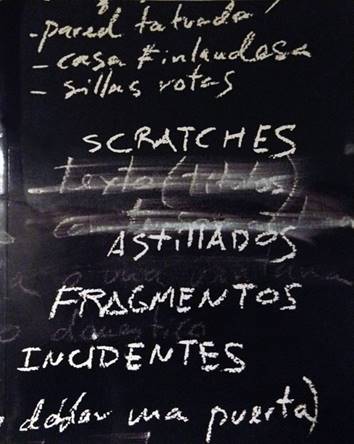 - pared tatuada
- casa finlandesa
- sillas rotas
SCRATCHES
texto (titulos)
ASTILLADOS
una ventana
FRAGMENTOS
domestico
INCIDENTES
dejar una puerta)